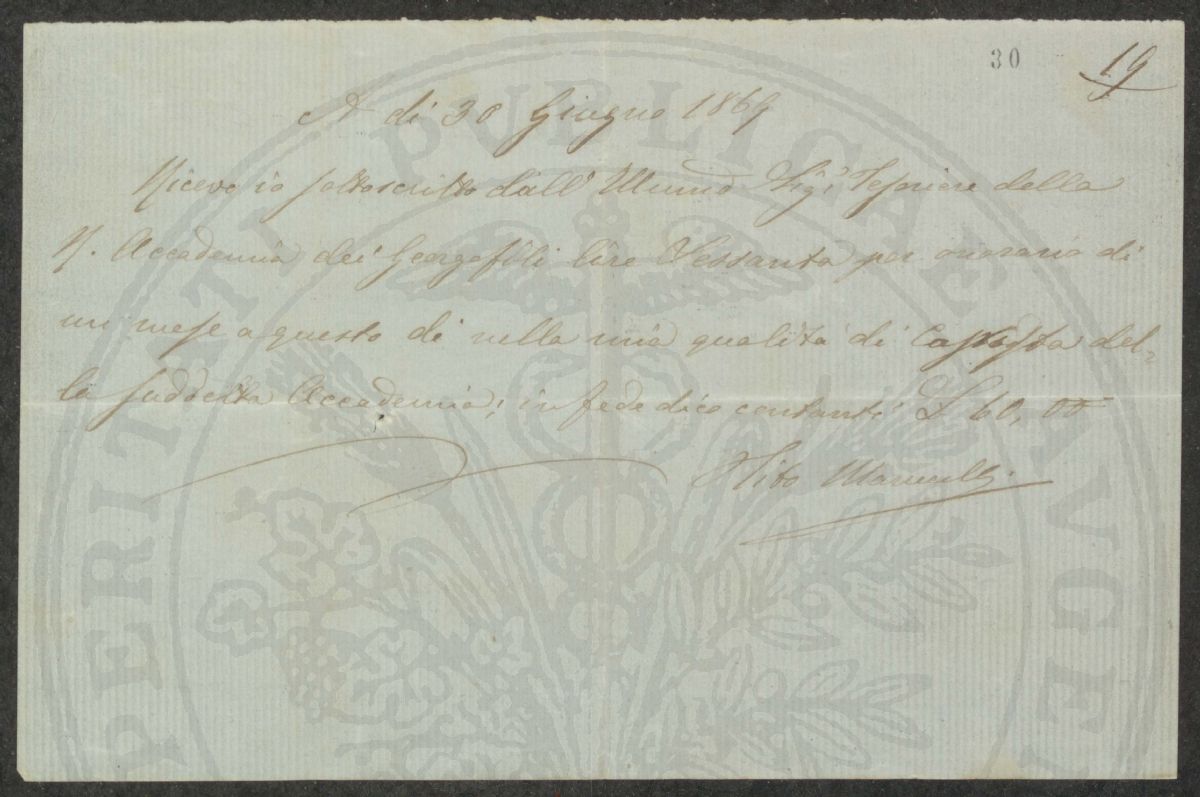 30 19
A dì 30 Giugno 1869
Ricevo io sottoscritto dall' Illumo Sigr Tesoriere della
R. Accademia dei Georgofili lire Sessanta per onorario di
un mese a questo dì nella mia qualità di del=
la suddetta Accademia; in fede dico contanti £ 60,00
Vito
PROSPERITATI PUBLICAE AUGE